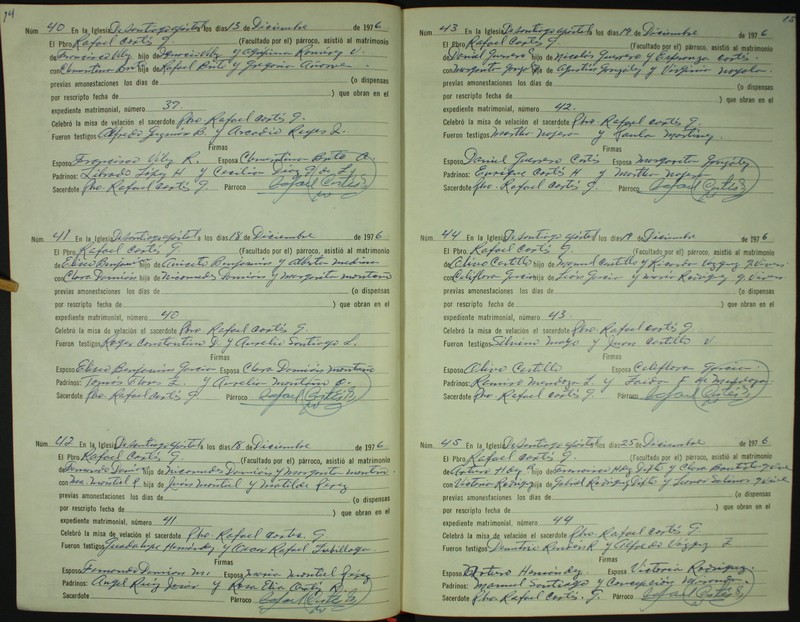 14
Núm. 40 En la Iglesia De Santiago Apóstol los días 13 de Diciembre de 1976
El Pbro. Rafael Cortés G. (Facultado por el) párroco, asistió al matrimonio
de hijo de y Romírez V.
con Clementina Brito hijo de Rafael Brito y Gregoria
previas amonestaciones los días de (o dispensas
por rescripto fecha de ) que obran en el
expediente matrimonial, número 37.
Celebró la misa de velación el sacerdote Pbro. Rafael Cortés G.
Fueron testigos Alfredo Guzmán B. y Arcadio Reyes L.
Firmas
Esposo Francisco Vity R. Esposa Clementina Brito A.
Padrinos: Librado López H. y Cecilia Díaz G. de L.
Sacerdote Pbro. Rafael Cortés G. Párroco Rafael Cortés G.
Núm. 41 En la Iglesia De Santiago Apóstol a los días 18 de Diciembre de 1976
El Pbro. Rafael Cortés G. (Facultado por el) párroco, asistió al matrimonio
de Eliseo Benjamín hijo de Aniceto Benjamín y Medina
con Clara Damián hija de Nicomedes Damián y Margarita Montiel
previas amonestaciones los días de (o dispensas
por rescripto fecha de ) que obran en el
expediente matrimonial, número 40
Celebró la misa de velación el sacerdote Pbro. Rafael Cortés G.
Fueron testigos Roger Constantino D. y Aurelio Santiago L.
Firmas
Esposo Eliseo Benjamín García Esposa Clara Damián
Padrinos: Tomás Flores Z. y Aurelia C.
Sacerdote Pbro. Rafael Cortés G. Párroco Rafael Cortés G.
Núm. 42 En la Iglesia De Santiago Apóstol los días 18 de Diciembre de 1976
El Pbro. Rafael Cortés G. (Facultado por el) párroco, asistió al matrimonio
de Fernando Damián hijo de Nicomedes Damián y Margarita
con Ma. Montiel P. hija de Montiel y Matilde Pérez
previas amonestaciones los días de (o dispensas
por rescripto fecha de ) que obran en el
expediente matrimonial, número 41
Celebró la misa de velación el sacerdote Pbro. Rafael Cortés G.
Fueron testigos Guadalupe Hernández y Oscar Rafael
Firmas
Esposo Fernando Damián M. Esposa María Montiel Pérez
Padrinos: Angel Ruiz y Rosa Elia Cortés R.
Sacerdote Párroco Rafael Cortés G.
15
Núm. 43 En la Iglesia De Santiago Apóstol los días 19 de Diciembre de 1976
El Pbro. Rafael Cortés G. (Facultado por el) párroco, asistió al matrimonio
de Daniel Guerrero hijo de Nicolás Guerrero y Esperanza Cortés
con Margarita hija de Agustín González y Virginia
previas amonestaciones los días de (o dispensas
por rescripto fecha de ) que obran en el
expediente matrimonial, número 42.
Celebró la misa de velación el sacerdote Pbro. Rafael Cortés G.
Fueron testigos Martha Mojera y Martínez
Firmas
Esposo Daniel Guerrero Cortés Esposa Margarita González
Padrinos: Enrique Cortés H. y Martha Mojera
Sacerdote Pbro. Rafael Cortés G. Párroco Rafael Cortés G.
Núm. 44 En la Iglesia De Santiago Apóstol los días 19 de Diciembre de 1976
El Pbro. Rafael Cortés G. (Facultado por el) párroco, asistió al matrimonio
de Olivo Castillo hijo de Castillo y
con Celiflora García hija de Luis García y María Rodríguez
previas amonestaciones los días de (o dispensas
por rescripto fecha de ) que obran en el
expediente matrimonial, número 43.
Celebró la misa de velación el sacerdote Pbro. Rafael Cortés G.
Fueron testigos Silvina y Juan Castillo V.
Firmas
Esposo Olivo Castillo Esposa Celiflora García
Padrinos: Ramiro Mendoza L. y F. de Mendoza
Sacerdote Pbro. Rafael Cortés G. Párroco Rafael Cortés G.
Núm. 45 En la Iglesia De Santiago Apóstol los días 25 de Diciembre de 1976
El Pbro. Rafael Cortés G. (Facultado por el) párroco, asistió al matrimonio
de Arturo hijo de y Bautista
con Victoria Rodríguez hija de Gabriel Rodríguez y Leonor
previas amonestaciones los días de (o dispensas
por rescripto fecha de ) que obran en el
expediente matrimonial, número 44
Celebró la misa de velación el sacerdote Pbro. Rafael Cortés G.
Fueron testigos Demetrio y Alfredo Z.
Firmas
Esposo Arturo Hernández Esposa Victoria Rodríguez
Padrinos: Manuel Santiago y Concepción
Sacerdote Pbro. Rafael Cortés G. Párroco Rafael Cortés G.